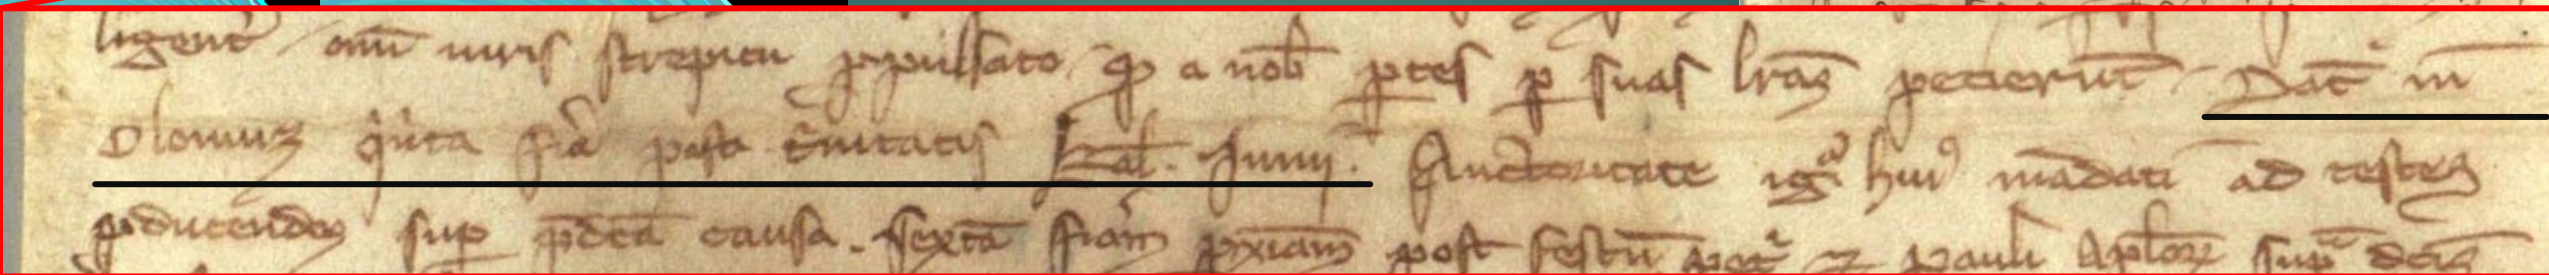 ligent̄ om̄i iuris strepitu ꝓpulsato qđ a nob̄ ꝑtes ꝑ suas lr̄as pecierūt Dat̄ in
Olomuz q̊i̊nta fr̄a post t̊initatis kal̄. Iunii. Auctoritate igr̄ hui᷒ mādati ad testes
ꝓducendos sup p̄dc̄a causa. sextā fr̄am ꝓximam post festū pet̊ ⁊ pauli Apl̄oꝝ